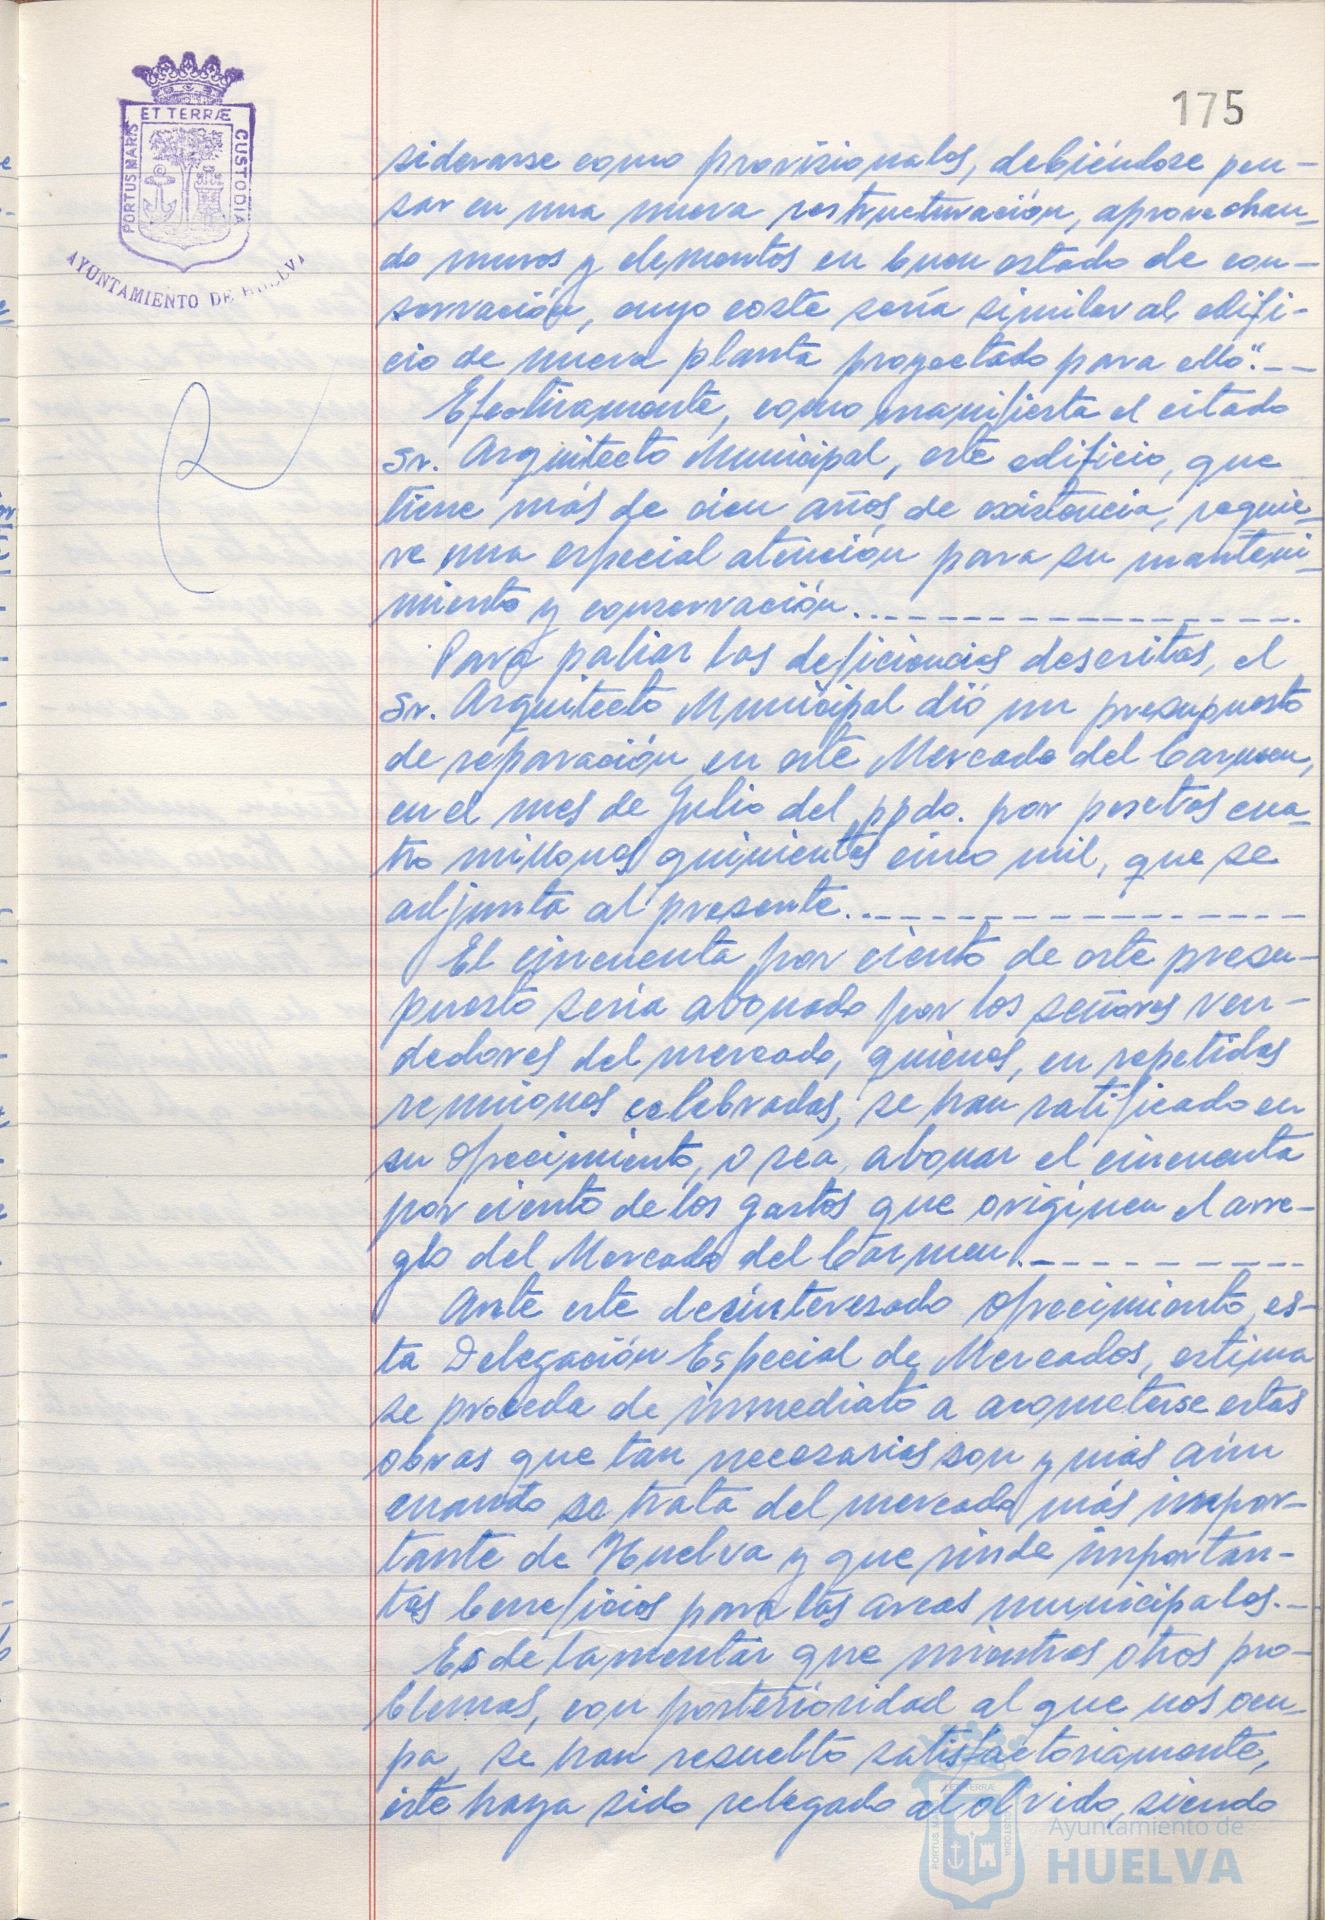 175
ET TERRÆ
PORTUS MARIS
CUSTODIA
AYUNTAMIENTO DE HUELVA
siderarse como provisionales, debiéndose pen-
sar en una nueva restructuración, aprovechan-
do muros y elementos en buen estado de con-
servación, cuyo coste sería similar al edifi-
cio de nueva planta proyectado para ello".--
Efectivamente, como manifiesta el citado
Sr. Arquitecto Municipal, este edificio, que
tiene más de cien años de existencia, requie-
re una especial atención para su manteni-
miento y conservación.-----------------
Para paliar las deficiencias descritas, el
Sr. Arquitecto Municipal dió un presupuesto
de reparación en este Mercado del Carmen,
en el mes de Julio del ppdo. por pesetas cua-
tro millones quinientas cinco mil, que se
adjunta al presente.-----------------
El cincuenta por ciento de este presu-
puesto sería abonado por los señores ven-
dedores del mercado, quienes, en repetidas
reuniones celebradas, se han ratificado en
su ofrecimiento, o sea, abonar el cincuenta
por ciento de los gastos que originen el arre-
glo del Mercado del Carmen.-----------
Ante este desinteresado ofrecimiento, es-
ta Delegación Especial de Mercados, estima
se proceda de inmediato a acometerse estas
obras que tan necesarias son y más aún
cuando se trata del mercado más impor-
tante de Huelva y que rinde importan-
tes beneficios para las arcas municipales.-
Es de lamentar que mientras otros pro-
blemas, con posterioridad al que nos ocu-
pa, se han resuelto satisfactoriamente,
éste haya sido relegado al olvido, siendo
ET TERRÆ
PORTUS MARIS
CUSTODIA
Ayuntamiento de
HUELVA